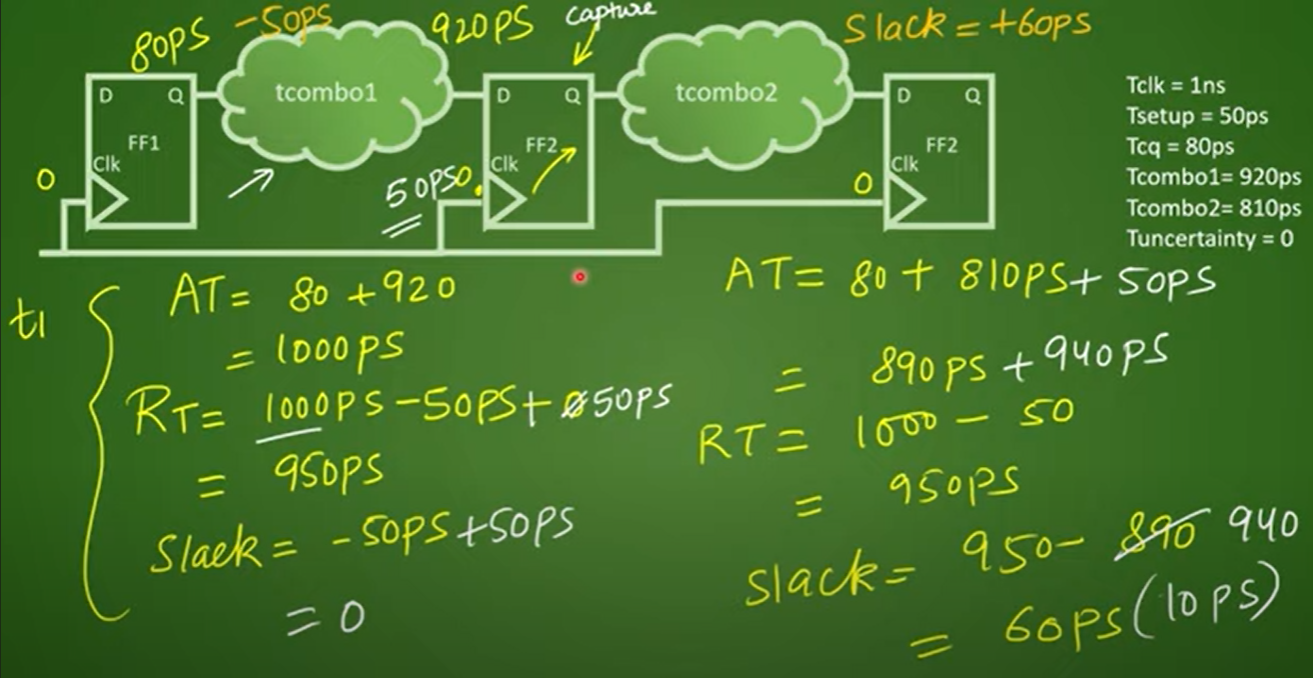 80PS -50ps 920PS Capture Slack = +60ps
D Q tcombo1 D Q tcombo2 D Q
FF1 FF2 FF2
Clk Clk Clk
0 50PS 0 0
Tclk = 1ns
Tsetup = 50ps
Tcq = 80ps
Tcombo1= 920ps
Tcombo2= 810ps
Tuncertainty = 0
t1
AT= 80 +920
= 1000PS
RT= 1000PS-50PS+ 50PS
= 950PS
Slack= -50PS+50PS
= 0
AT= 80+ 810PS+ 50PS
= 890ps +940PS
RT= 1000 - 50
= 950ps
slack= 950- 890 940
= 60ps (10ps)